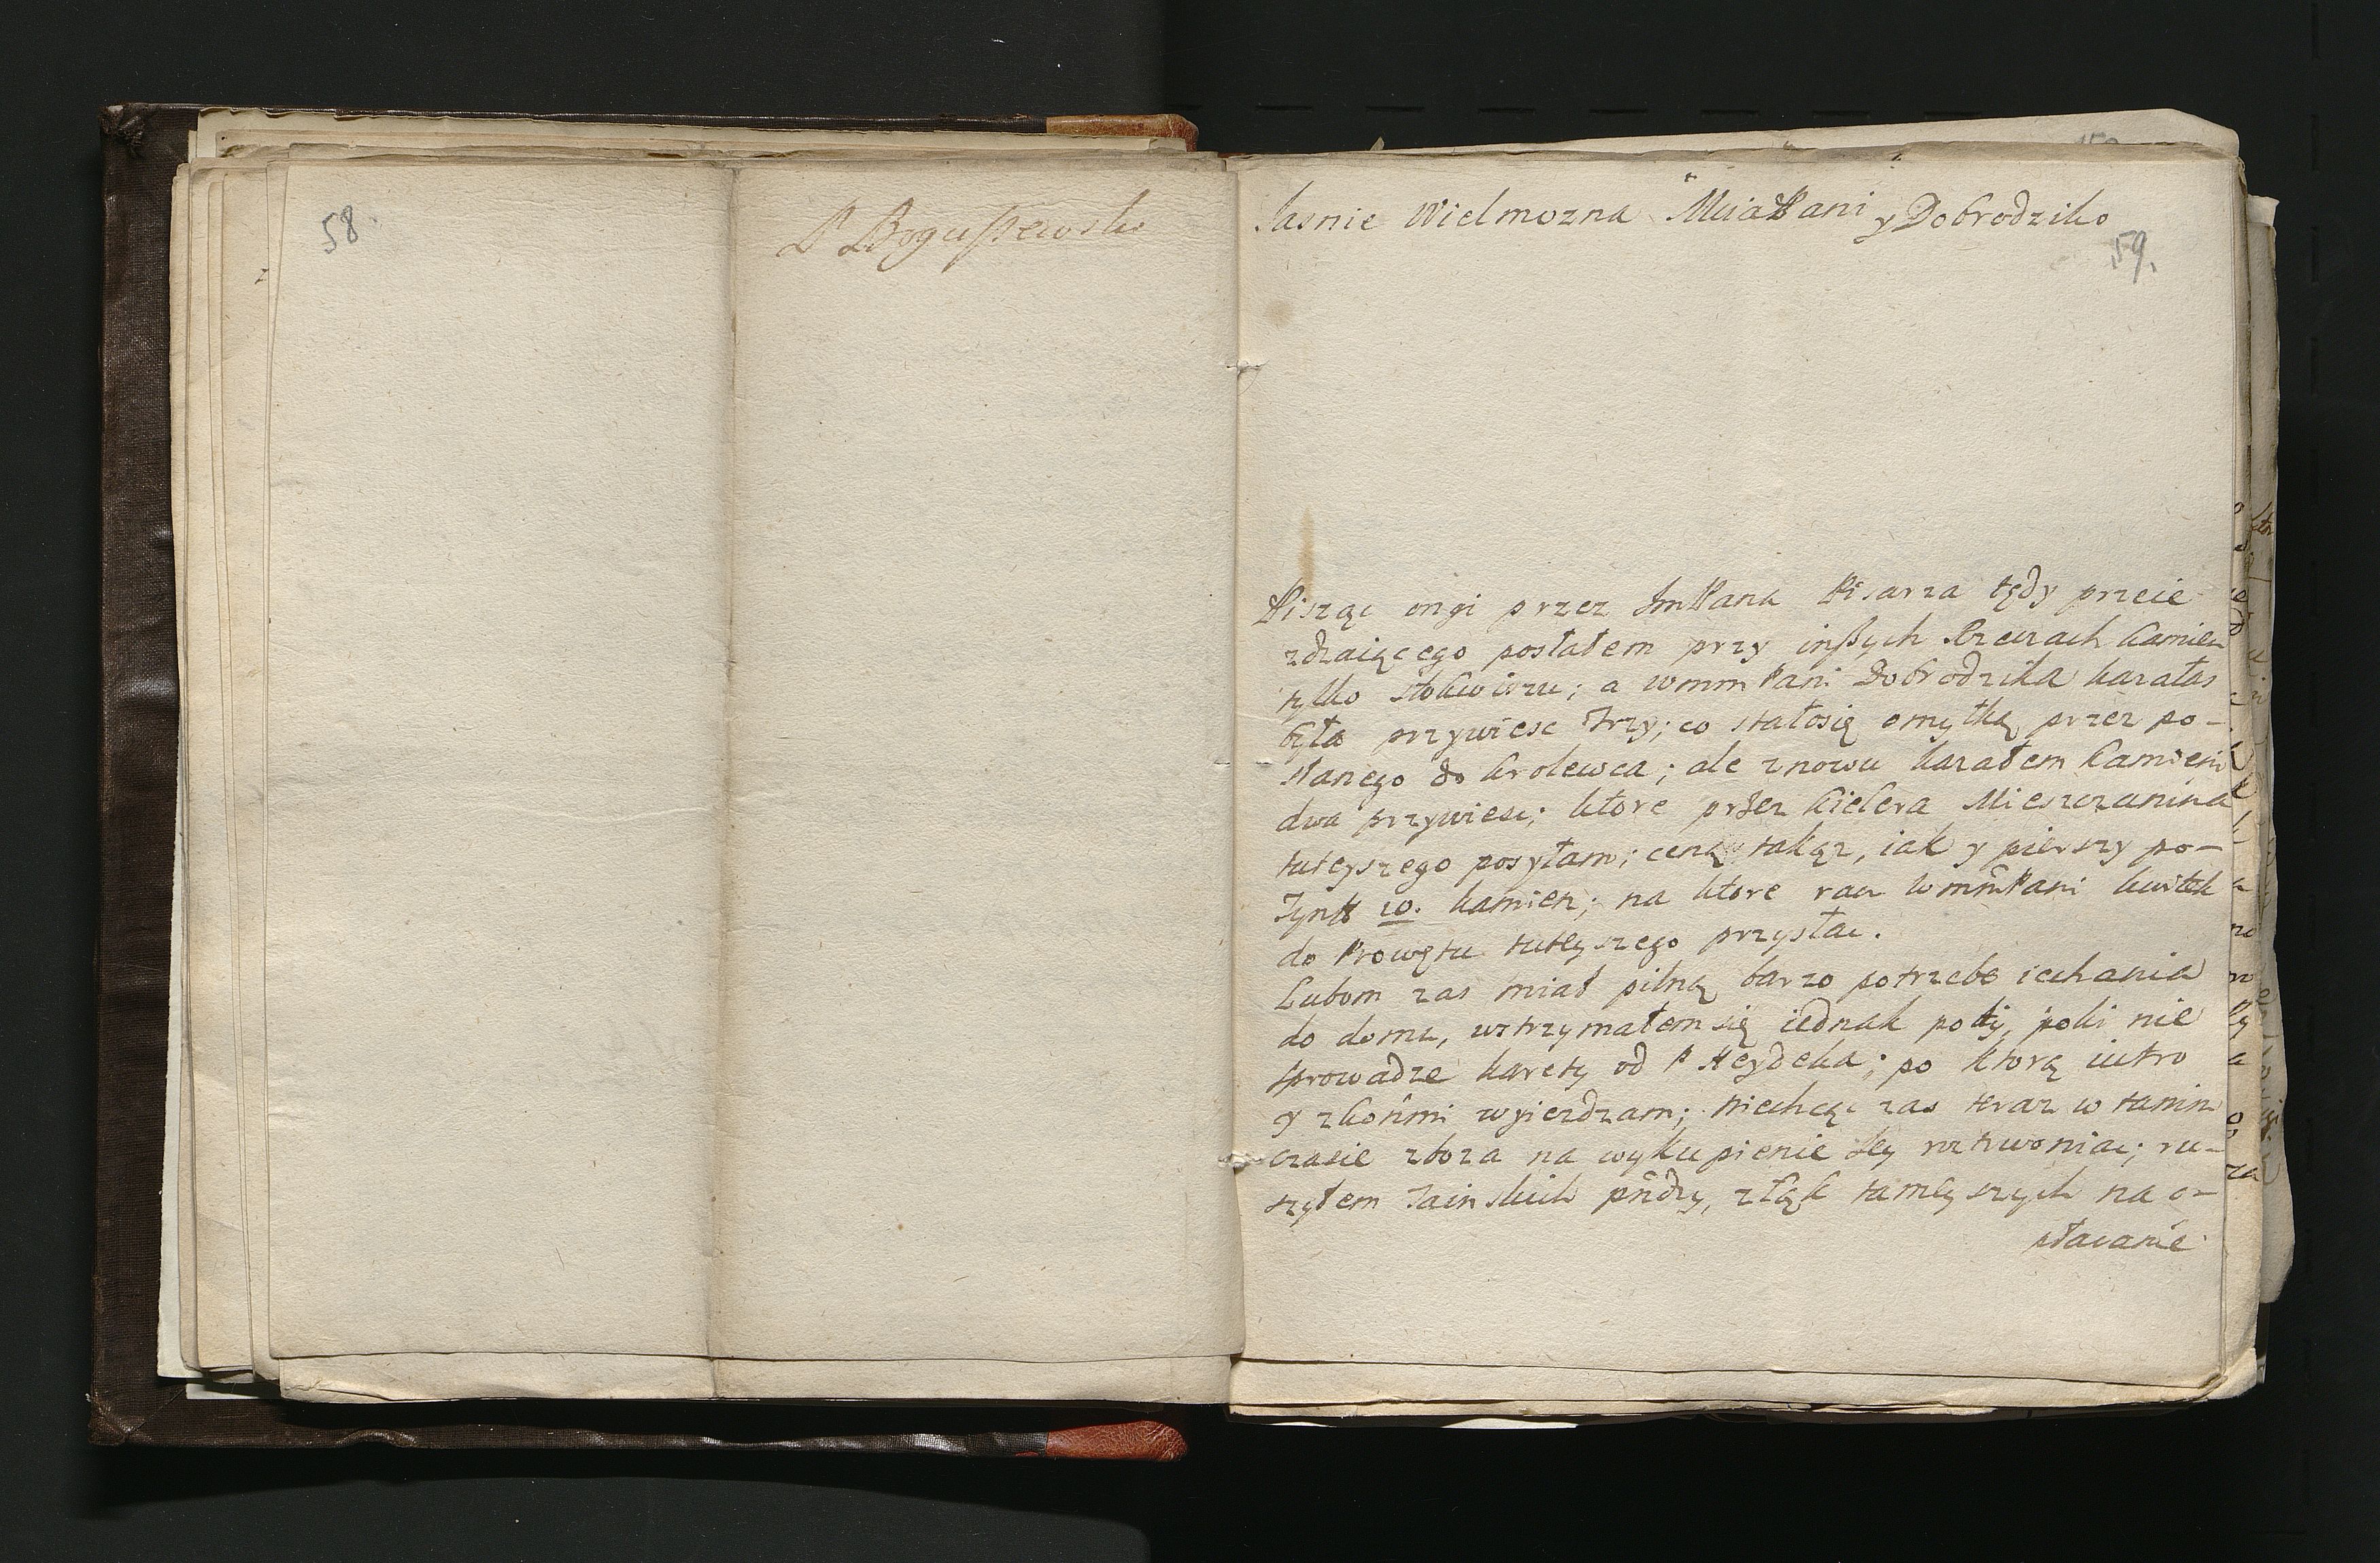 58.
P Boguszewski
Jasnie Wielmozna Mcia Pani y Dobrodziko
59.
Pisząc ongi przez Jm Pana Pisarza tędy przeie
zdzaiącego posłałem przy inszych Rzeczach kamien
tylko ; a wmmPani Dobrodzika kazałas
była przywiesc Trzy; co stałosię omyłką przez po-
słanego do krolewca; ale znowu kazałem kamieni
dwa przywiesc; ktore przez kielera Mieszczanina
tuteyszego posyłam; ceną takąz, iak y pierszy po-
Tynff 10. kamien; na ktore racz WmmPani kwitek
do Prowętu tuteyszego przysłac.
Lubom zas miał pilną barzo potrzebe iechania
do domu, wstrzymałem się iednak poty, poki nie
sprowadze karety od P Heydeka; po ktorą iutro
y zkońmi wyiezdzam; niechcąc zas teraz w tanim
czasie zboza na wykupienie Jey roztrwoniac; ru-
szyłem pñdzy, złąk tameyszych na o-
płacanie